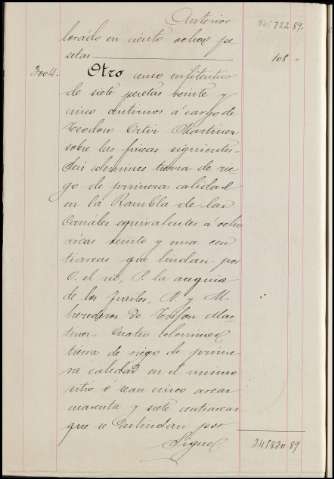 Anterior 245722.89.
lorado en ciento ocho pe
setas 108 "
Otro censo enfitéutico
de siete pesetas veinte y
cinco céntimos á cargo de
Teodoro Ortiz Martinez
sobre las fincas siguientes.
Seis celemines tierra de rie
go de primera calidad
en la Rambla de las
Canales equivalentes á ocho
áreas veinte y una cen
tiareas que lindan por
O. el rio, P. la acequia
de los Huertos, N. y M.
herederos de
Cuatro celemines
tierra de riego de prime
ra calidad en el mismo
sitio ó sean cinco áreas
cuarenta y siete centiareas
que se deslindan por
Sigue 245830.89